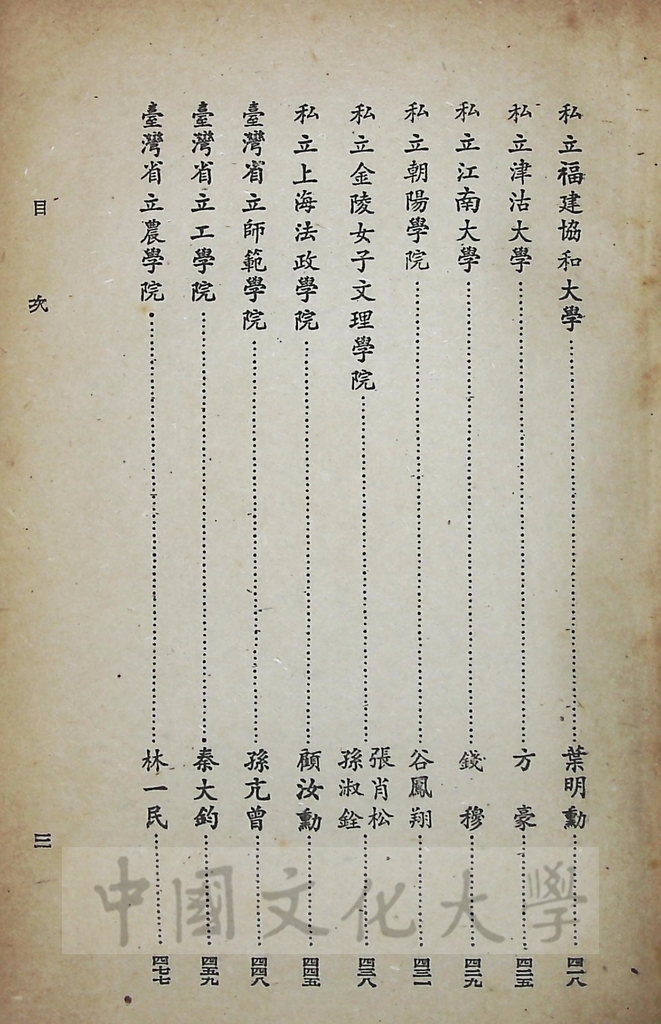 私立福建協和大學……葉明勳……四一八
私立津沽大學……方　豪……四二五
私立江南大學……錢　穆……四二九
私立朝陽學院……谷鳳翔……四三一
私立金陵女子文理學院……張肖松 孫淑銓……四三八
私立上海法政學院……顧汝勳……四四五
臺灣省立師範學院……孫亢曾……四四八
臺灣省立工學院……秦大鈞……四五九
臺灣省立農學院……林一民……四七七
目　次
三
中國文化大學